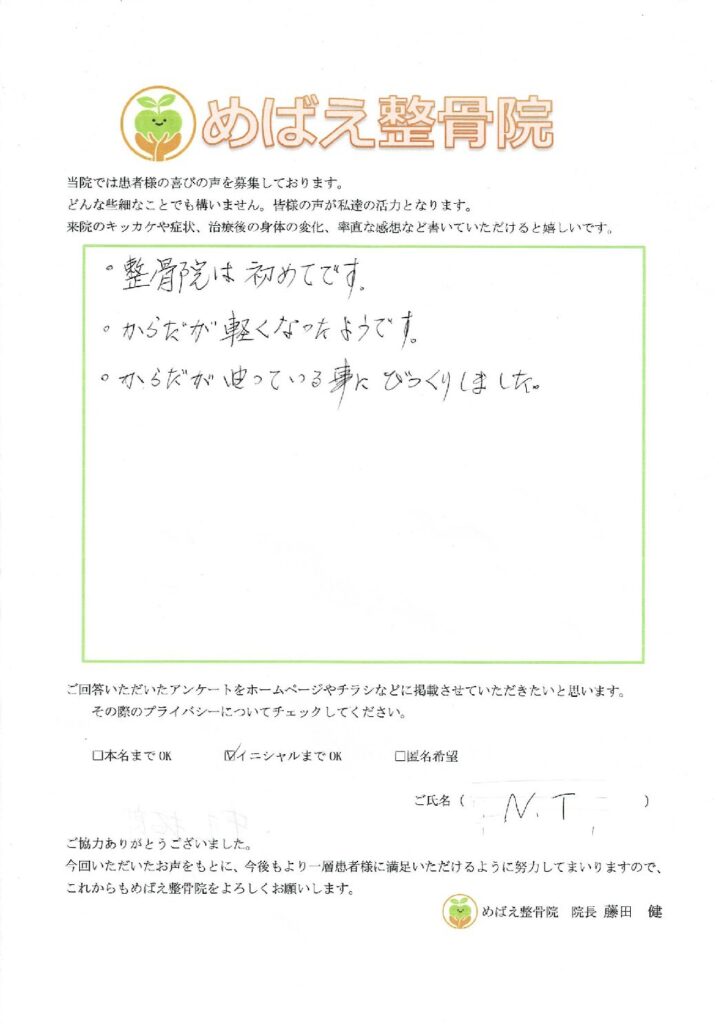 めばえ整骨院
当院では患者様の喜びの声を募集しております。
どんな些細なことでも構いません。皆様の声が私達の活力となります。
来院のキッカケや症状、治療後の身体の変化、率直な感想など書いていただけると嬉しいです。
。整骨院は初めてです。
。からだが軽くなったようです。
。からだが曲っている事にびっくりしました。
ご回答いただいたアンケートをホームページやチラシなどに掲載させていただきたいと思います。
その際のプライバシーについてチェックしてください。
□本名まで OK ☑イニシャルまで OK □匿名希望
ご氏名( N.T )
ご協力ありがとうございました。
今回いただいたお声をもとに、今後もより一層患者様に満足いただけるように努力してまいりますので、
これからもめばえ整骨院をよろしくお願いします。
めばえ整骨院 院長 藤田 健